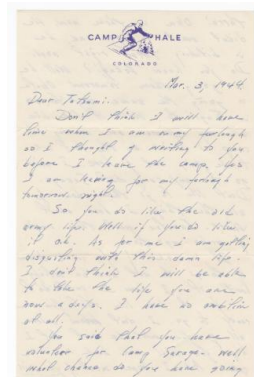 CAMP HALE
COLORADO
Mar. 3, 1944
Dear Tatsumi:
Don't think I will have
time when I am on my furlough
so I thought of writing to you
before I leave the camp. Yes
I am leaving for my furlough
tomorrow night.
So you do like the old
army life. Well if you do like
it o.k. As for me I am getting
disgusting with this damn life.
I don't think I will be able
to like the life you are
now a days. I have no ambition
at all.
You said that you have
volunteer for Camp Savage. Well
what chance do you have going